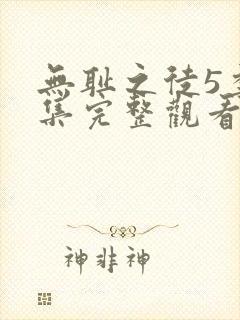 無耻之徒5季
集完整觀看
神非神